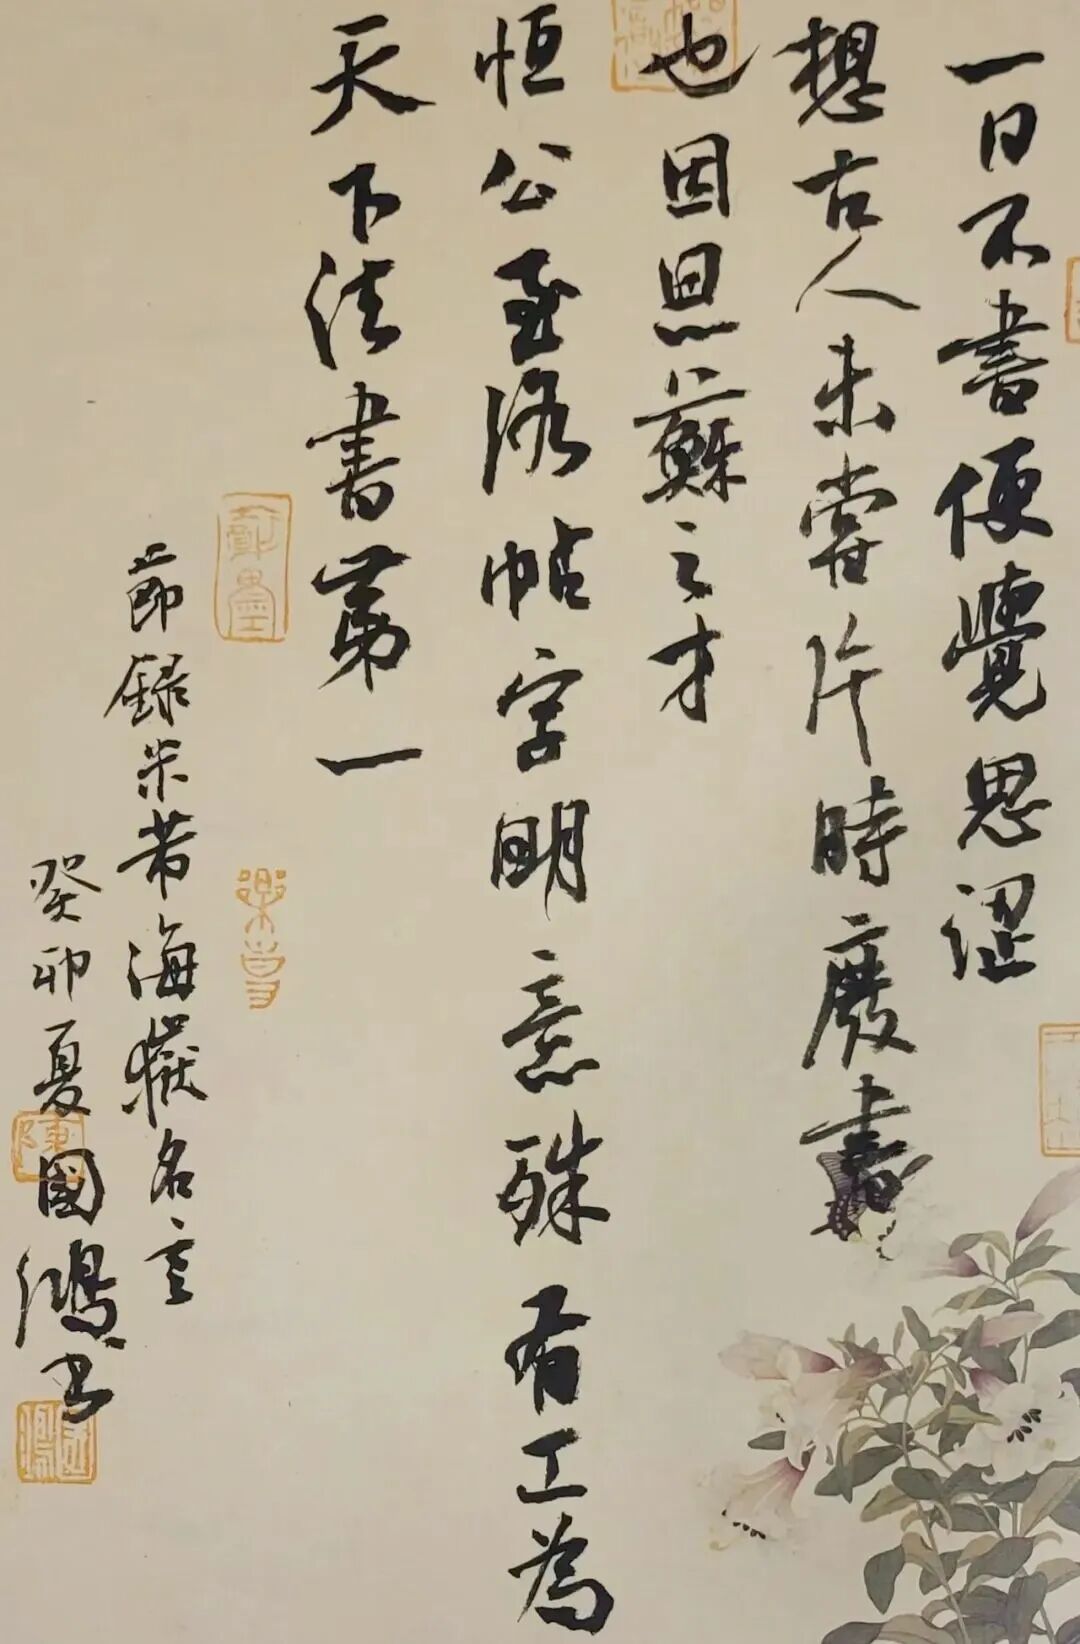 一日不書便覺思涩
想古人未嘗片時廢書
也因思蘇之才
恒公至洛帖字明意殊有工為
天下法書第一
節録米芾海嶽名言
癸卯夏國鴻書